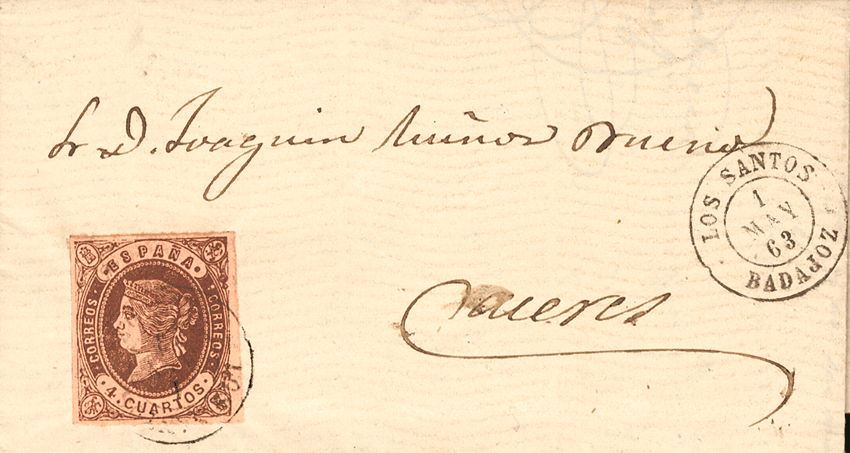 Sr. D. Joaquin Muñoz Bueno
LOS SANTOS
1
MAY
63
BADAJOZ
Caceres
ESPAÑA
CORREOS
CORREOS
4. CUARTOS